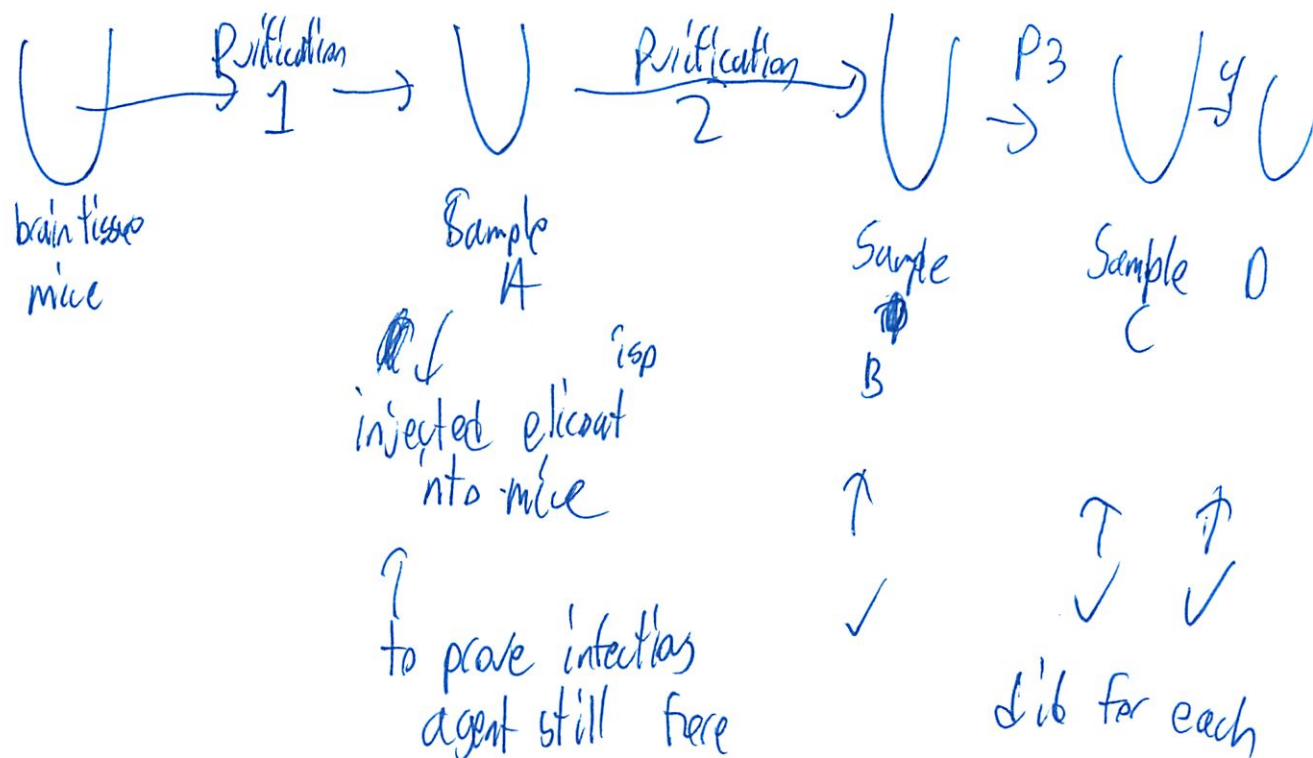 Purification
1
Purification
2
P3
4
brain tissue
mice
Sample
A
Sample
B
Sample
C
D
injected elicout
into mice
to prove infectious
agent still here
did for each